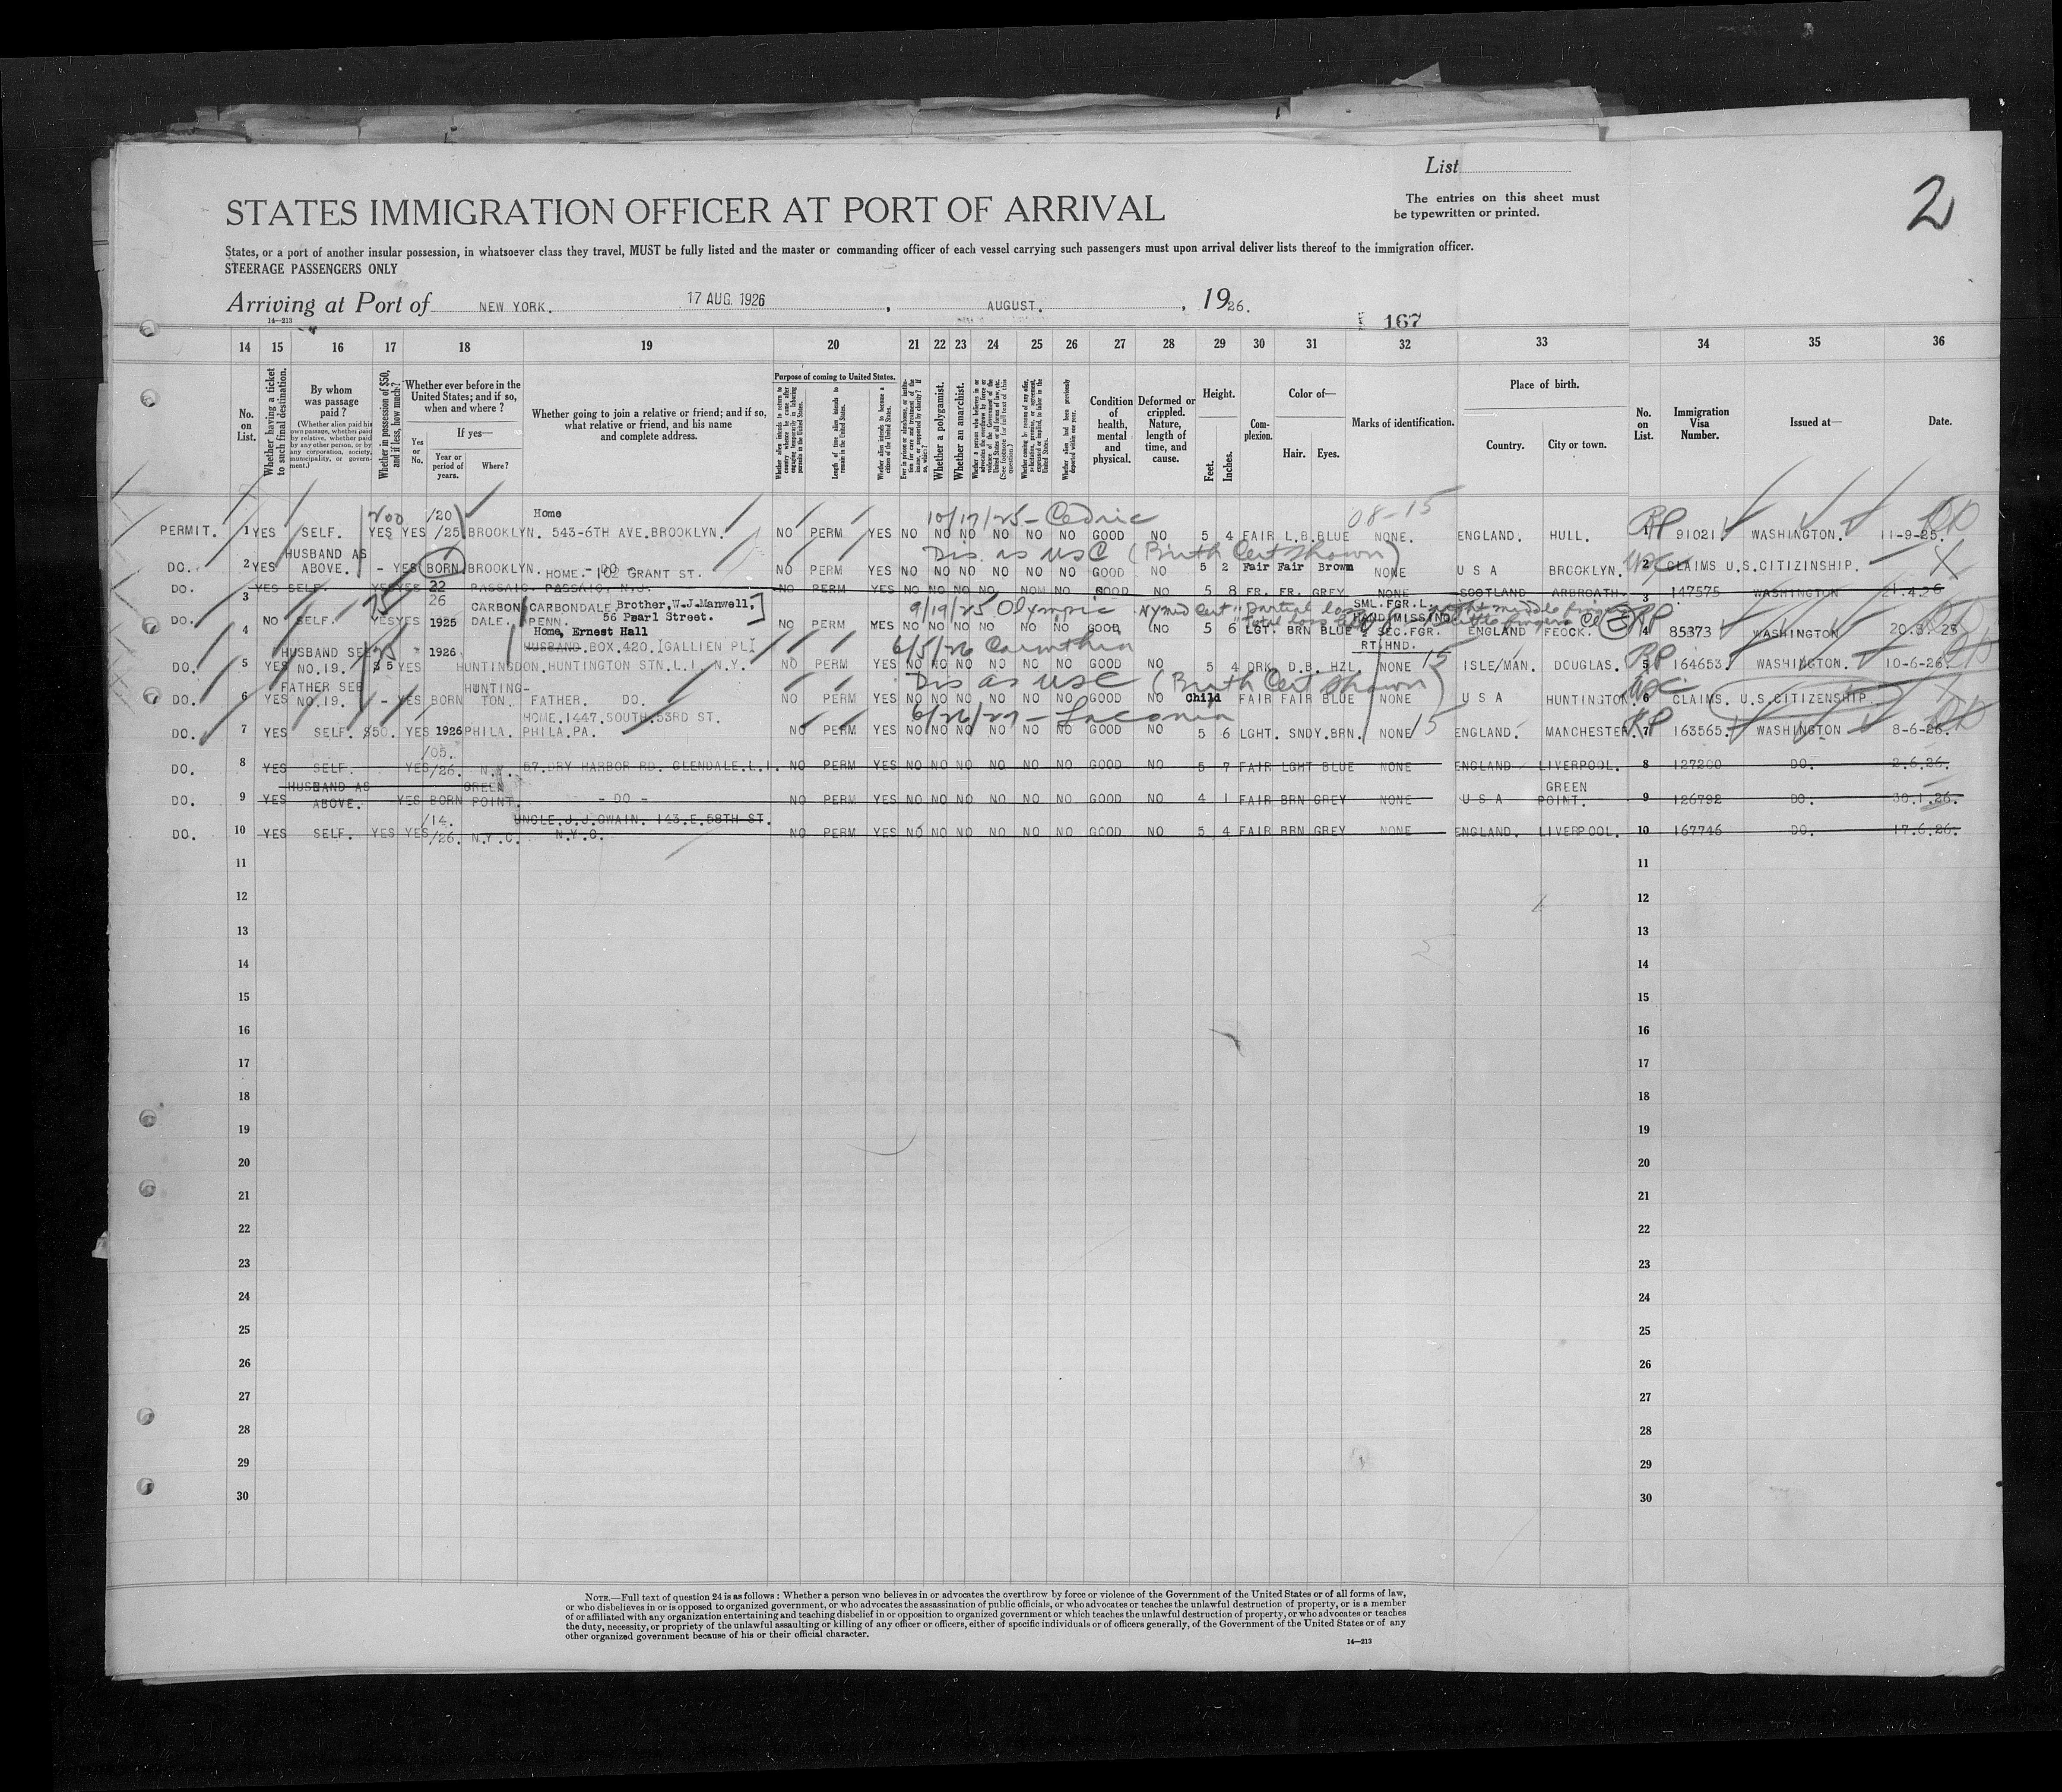 List
2
STATES IMMIGRATION OFFICER AT PORT OF ARRIVAL
The entries on this sheet must
be typewritten or printed.
States, or a port of another insular possession, in whatsoever class they travel, MUST be fully listed and the master or commanding officer of each vessel carrying such passengers must upon arrival deliver lists thereof to the immigration officer.
STEERAGE PASSENGERS ONLY
Arriving at Port of NEW YORK. 17 AUG. 1926, AUGUST., 1926.
14—213
167
14 15 16 17 18 19 20 21 22 23 24 25 26 27 28 29 30 31 32 33 34 35 36
No. on List.
Whether having a ticket to such final destination.
By whom was passage paid?
(Whether alien paid his own passage, whether paid by relative, whether paid by any other person, or by any corporation, society, municipality, or government.)
Whether in possession of $50, and if less, how much?
Whether ever before in the United States; and if so, when and where?
Yes or No.
If yes—
Year or period of years.
Where?
Whether going to join a relative or friend; and if so, what relative or friend, and his name and complete address.
Purpose of coming to United States.
Whether alien intends to return to country whence he came after engaging temporarily in laboring pursuits in the United States.
Length of time alien intends to remain in the United States.
Whether alien intends to become a citizen of the United States.
Whether a polygamist.
Whether an anarchist.
Condition of health, mental and physical.
Deformed or crippled. Nature, length of time, and cause.
Height.
Feet. Inches.
Complexion.
Color of—
Hair. Eyes.
Marks of identification.
Place of birth.
Country. City or town.
No. on List.
Immigration Visa Number.
Issued at—
Date.
10/17/25 - Cedric
08-15
PERMIT. 1 YES SELF. 200 YES YES /20 /25 BROOKLYN. Home 543-6TH AVE.BROOKLYN. NO PERM YES NO NO NO NO NO NO GOOD NO 5 4 FAIR L.B.BLUE NONE. ENGLAND. HULL. 1 RP 91021 WASHINGTON. 11-9-25.
Dis. as USC (Birth Cert Shown)
DO. 2 YES HUSBAND AS ABOVE. - YES BORN BROOKLYN. - DO - HOME. 102 GRANT ST. NO PERM YES NO NO NO NO NO NO GOOD NO 5 2 Fair Fair Brown NONE U S A BROOKLYN. 2 USC CLAIMS U.S.CITIZINSHIP.
DO. 3 YES SELF. YES YES 22 26 PASSAIC. PASSAIC, N.J. NO PERM YES NO NO NO NO NOM NO GOOD NO 5 8 FR. FR. GREY NONE SCOTLAND ARBROATH. 3 147575 WASHINGTON 21.4.26
9/19/25 Olympic
DO. 4 NO SELF. 75 YES YES 1925 CARBON DALE. CARBONDALE PENN. Brother, W.J.Manwell, 56 Pearl Street. NO PERM YES NO NO NO NO NO NO GOOD NO 5 6 LGT. BRN BLUE SML.FGR.L. HAND MISSING & SEC.FGR. RT.HND. ENGLAND FEOCK. 4 RP 85373 WASHINGTON 20.3.25
6/5/26 Carinthia
DO. 5 YES HUSBAND SEE NO.19. 25 $ 5 YES 1926 HUNTINGDON. Home, Ernest Hall HUSBAND.BOX.420.[GALLIEN PL] HUNTINGTON STN.L.I. N.Y. NO PERM YES NO NO NO NO NO NO GOOD NO 5 4 DRK. D.B. HZL. NONE 15 ISLE/MAN. DOUGLAS. 5 RP 164653. WASHINGTON. 10-6-26.
Dis as USC (Birth Cert Shown)
DO. 6 YES FATHER SEE NO.19. - YES BORN HUNTING-TON. FATHER. DO. NO PERM YES NO NO NO NO NO NO GOOD NO Child FAIR FAIR BLUE NONE U S A HUNTINGTON. 6 USC CLAIMS. U.S.CITIZENSHIP.
6/26/27 - Laconia
DO. 7 YES SELF. $50. YES 1926 PHILA. HOME.1447.SOUTH.53RD ST. PHILA.PA. NO PERM YES NO NO NO NO NO NO GOOD NO 5 6 LGHT. SNDY.BRN. NONE 15 ENGLAND. MANCHESTER. 7 RP 163565. WASHINGTON 8-6-26.
DO. 8 YES SELF. YES /05. /26. N.Y. 57.DRY HARBOR RD. GLENDALE.L.I. NO PERM YES NO NO NO NO NO NO GOOD NO 5 7 FAIR LGHT BLUE NONE ENGLAND LIVERPOOL. 8 127200 DO. 2.6.26.
DO. 9 YES HUSBAND AS ABOVE. - YES BORN GREEN POINT. - DO - NO PERM YES NO NO NO NO NO NO GOOD NO 4 1 FAIR BRN GREY NONE U S A GREEN POINT. 9 126792 DO. 30.1.26.
DO. 10 YES SELF. YES YES /14. /26. N.Y.C. UNCLE.J.J.OWAIN. 143.E.58TH ST. N.Y.C. NO PERM YES NO NO NO NO NO NO GOOD NO 5 4 FAIR BRN GREY NONE ENGLAND. LIVERPOOL. 10 167746 DO. 17.6.26.
11 11
12 12
13 13
14 14
15 15
16 16
17 17
18 18
19 19
20 20
21 21
22 22
23 23
24 24
25 25
26 26
27 27
28 28
29 29
30 30
NOTE.—Full text of question 24 is as follows: Whether a person who believes in or advocates the overthrow by force or violence of the Government of the United States or of all forms of law,
or who disbelieves in or is opposed to organized government, or who advocates the assassination of public officials, or who advocates or teaches the unlawful destruction of property, or is a member
of or affiliated with any organization entertaining and teaching disbelief in or opposition to organized government or which teaches the unlawful destruction of property, or who advocates or teaches
the duty, necessity, or propriety of the unlawful assaulting or killing of any officer or officers, either of specific individuals or of officers generally, of the Government of the United States or of any
other organized government because of his or their official character.
14—213